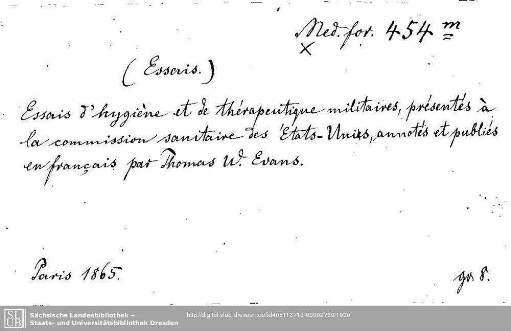 Med. for. 454 m
(Essais.)
Essais d'hygiène et de thérapeutique militaires, présentés à
la commission sanitaire des États-Unis, annotés et publiés
en français par Thomas W. Evans.
Paris 1865.
gr. 8.
SLUB
Sächsische Landesbibliothek –
Staats- und Universitätsbibliothek Dresden